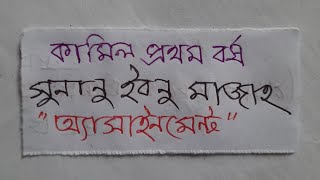 কামিল প্রথম বর্ষ
সুনানু ইবনু মাজাহ
"অ্যাসাইনমেন্ট"